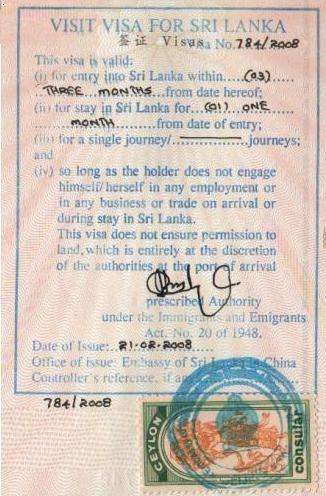 VISIT VISA FOR SRI LANKA
签证 Visas
Visa No. 784/2008
This visa is valid:
(i) for entry into Sri Lanka within.....(03)....
THREE MONTHS...from date hereof;
(ii) for stay in Sri Lanka for....(01) ONE
MONTH............from date of entry;
(iii) for a single journey/..................journeys;
and
(iv) so long as the holder does not engage
himself/herself in any employment or
in any business or trade on arrival or
during stay in Sri Lanka.
This visa does not ensure permission to
land, which is entirely at the discretion
of the authorities at the port of arrival
prescribed Authority
under the Immigrants and Emigrants
Act. No. 20 of 1948.
Date of Issue: 21-02-2008
Office of issue: Embassy of Sri Lanka in China
Controller's reference, if any
784/2008
CEYLON
consular